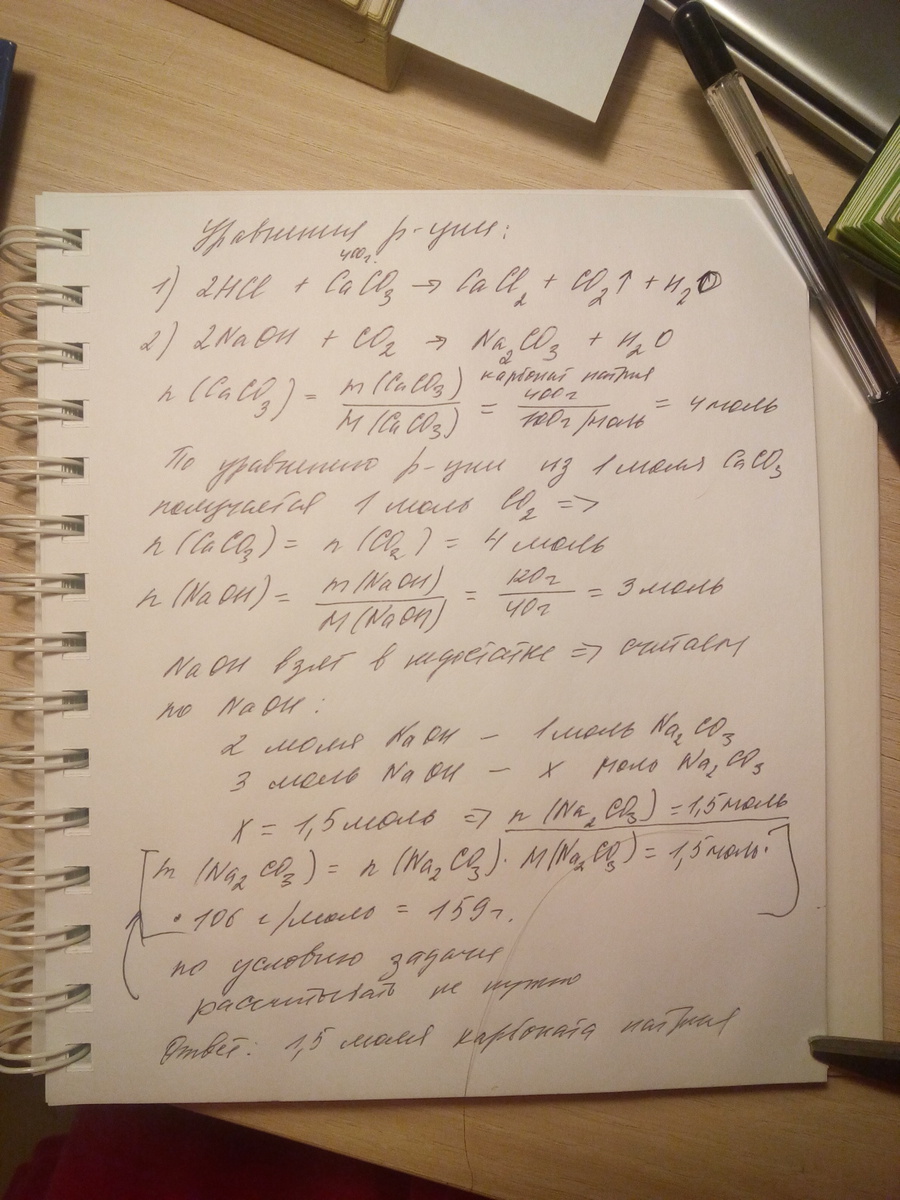 Уравнения р-ции:
400г.
1) 2HCl + CaCO₃ → CaCl₂ + CO₂↑ + H₂O
2) 2NaOH + CO₂ → Na₂CO₃ + H₂O
карбонат натрия
n (CaCO₃) = m (CaCO₃) / M (CaCO₃) = 400г / 100г/моль = 4 моль
По уравнению р-ции из 1 моля CaCO₃
получается 1 моль CO₂ =>
n (CaCO₃) = n (CO₂) = 4 моль
n (NaOH) = m (NaOH) / M (NaOH) = 120г / 40г = 3 моль
NaOH взят в недостатке => считаем
по NaOH:
2 моля NaOH – 1 моль Na₂CO₃
3 моль NaOH – x моль Na₂CO₃
x = 1,5 моль => n (Na₂CO₃) = 1,5 моль
m (Na₂CO₃) = n (Na₂CO₃) · M (Na₂CO₃) = 1,5 моль ·
· 106 г/моль = 159 г.
по условию задачи
рассчитывать не нужно
Ответ: 1,5 моля карбоната натрия